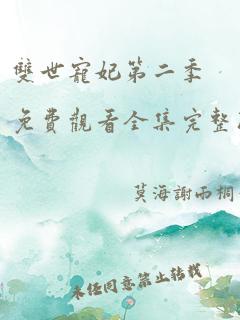 雙世寵妃第二季
免費觀看全集完整
莫海謝雨桐
未经同意禁止转载